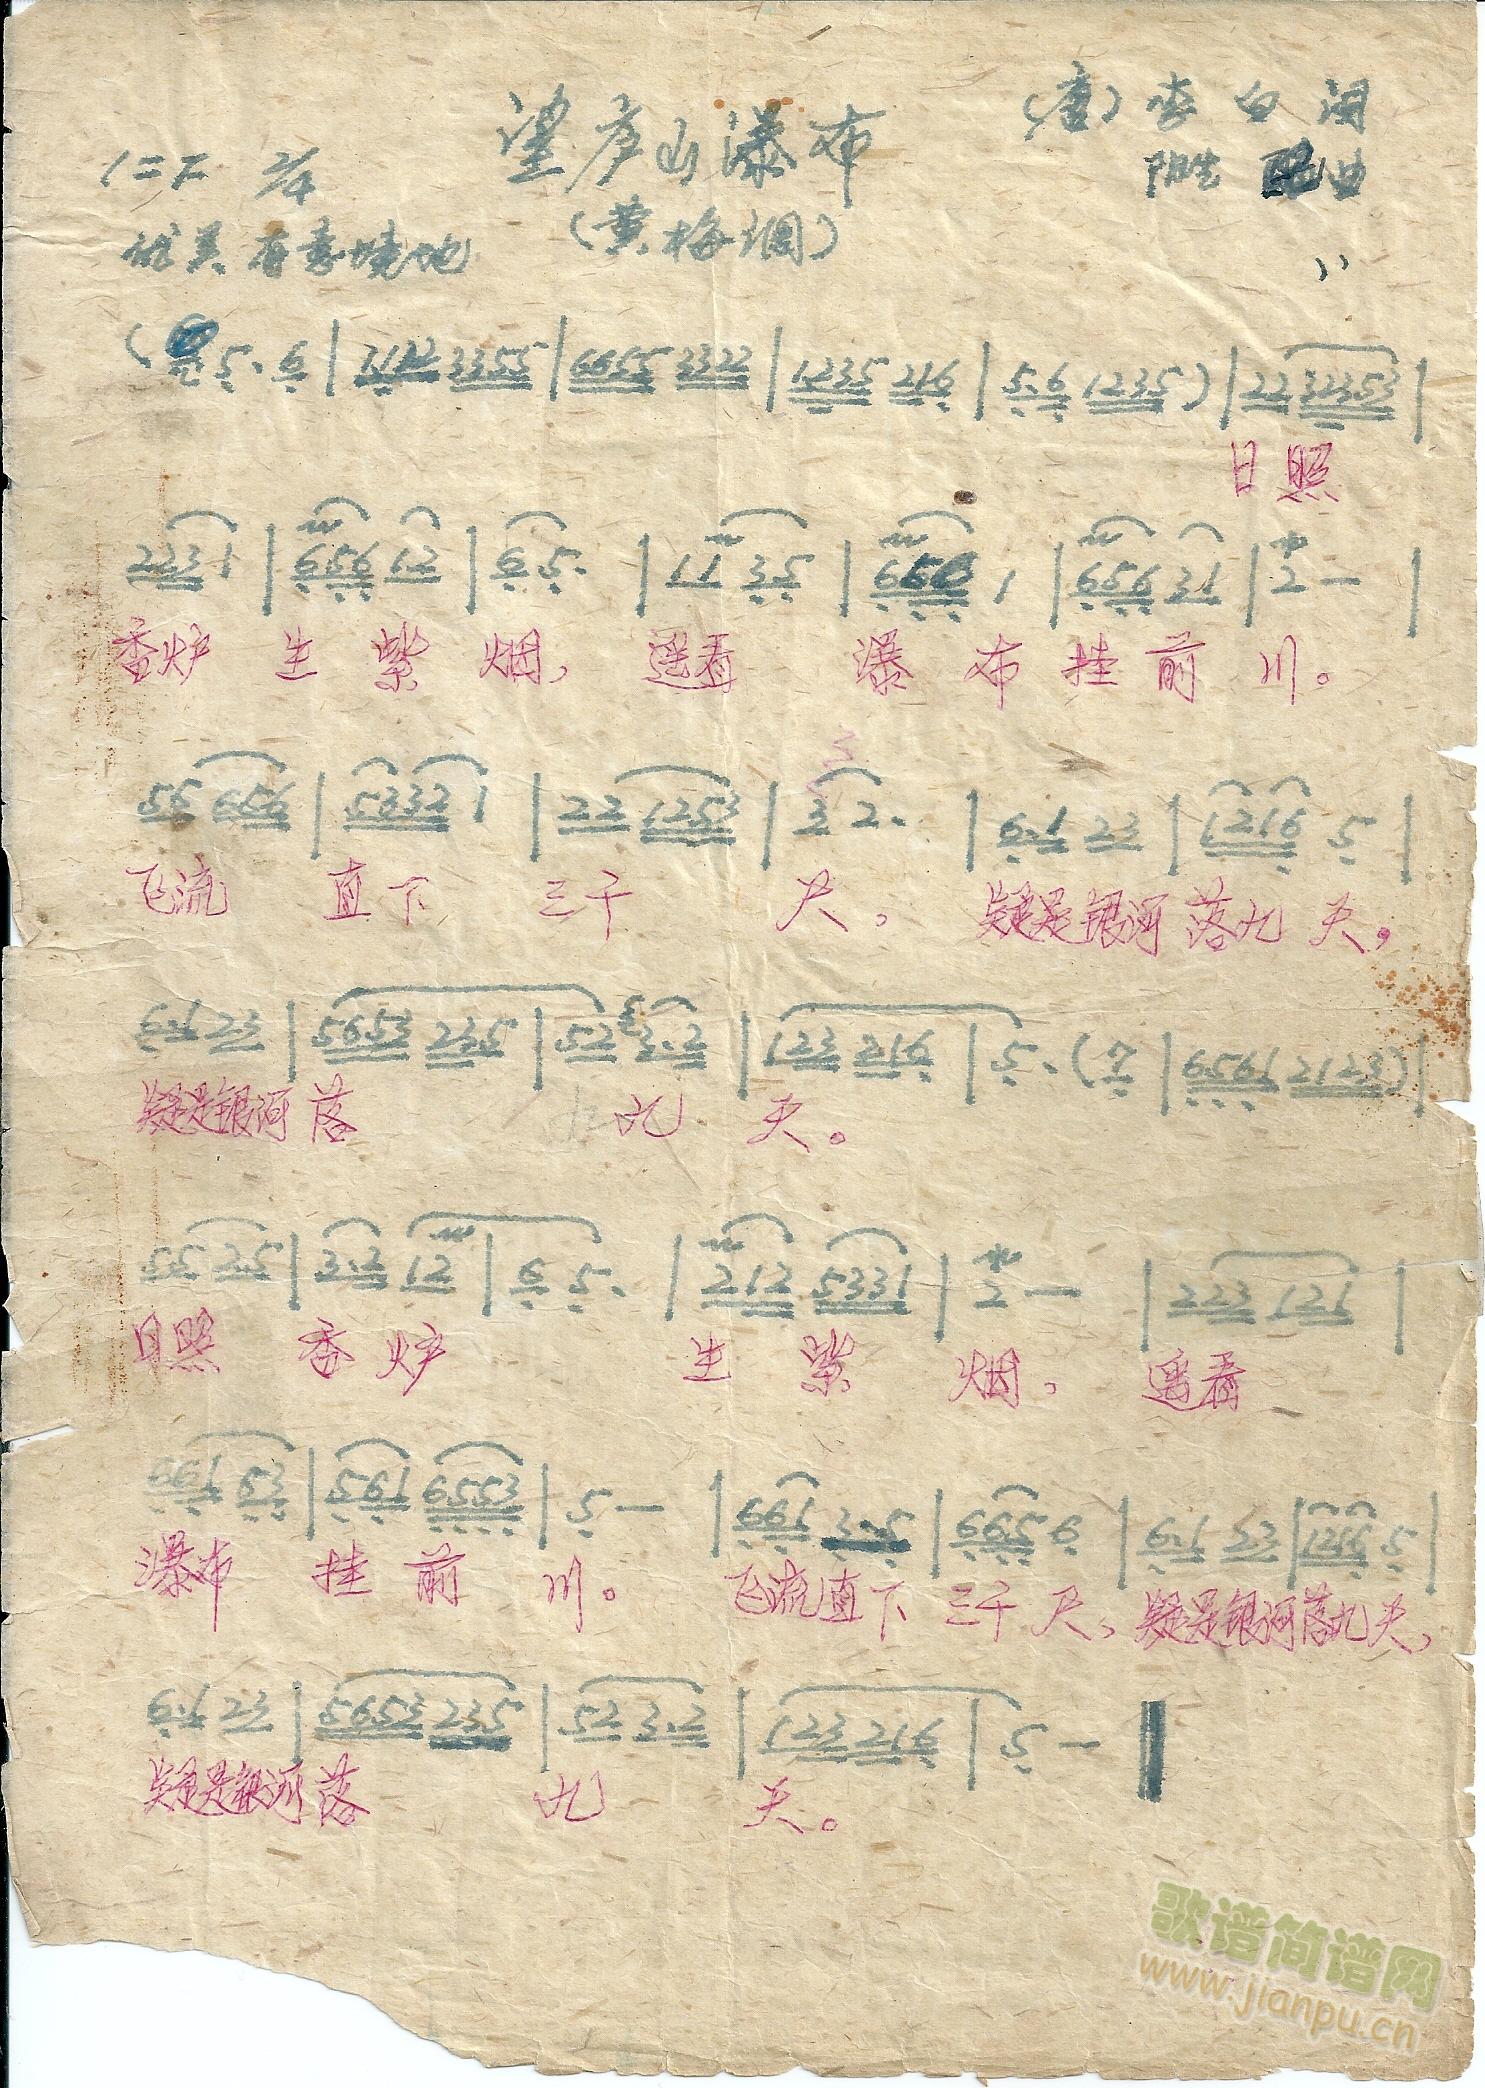 望庐山瀑布
(唐)李白词
1=F 2/4
曲
(黄梅调)
优美 有意境地
5· 6 | 2 1 1 2 3 3 5 5 | 6 6 5 5 3 3 2 2 | 1 2 3 5 2 1 6 | 5· 6 1 2 3 5 ) | 2 2 3 2 3 5 3 |
日照
2 2 3 1 | 6 5 6 1 2 | 6 5· | 1 1 3 5 | 6 5 6 1 | 6 5 6 3 1 | 2 — |
香炉 生 紫 烟, 遥看 瀑 布 挂 前 川。
5 5 6 5 6 | 5 3 3 2 1 | 2 2 1 2 5 3 | 3 2· | 6·1 2 3 | 1 2 1 6 5 |
飞流 直下 三千 尺, 疑是银河 落九 天,
6·1 2 3 | 5 6 5 3 2 3 5 | 5 2 3·2 | 1 2 3 2 1 6 | 5· ( 7 | 6 5 6 1 2 1 2 3 ) |
疑是银河 落 九 天。
5 5 2·5 | 3·2 1 2 | 6 5· | 2 1 2 5 3 3 1 | 2 — | 2 2 3 1 2 1 |
日照 香 炉 生 紫 烟, 遥看
6 6 1 5 3 | 5 6 1 6 5 5 3 | 5 — | 6 6 1 3·5 | 6 6 5 6 | 6·1 2 3 | 1 2 1 6 5 |
瀑布 挂 前 川。 飞流直下 三千 尺, 疑是银河落九天,
6·1 2 3 | 5 6 5 3 2 3 5 | 5 2 3·2 | 1 2 3 2 1 6 | 5 — ‖
疑是银河 落 九 天。
歌谱简谱网
www.jianpu.cn